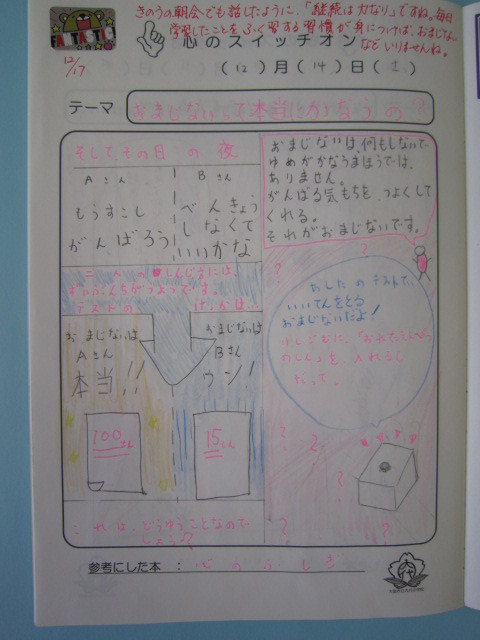 きのうの朝会でも話したように、「継続は力なり」ですね。毎日
学習したことをふく習する習慣が身についけば、おまじない
などいりませんね。
FANTASTIC
12/17
心のスイッチオン
(12)月(14)日(土)
テーマ
おまじないって本当にかなうの?
そしてその日の夜
Aさん
もうすこし
がんばろう
Bさん
べんきょう
しなくて
いいかな
二人の
には、
テストの
おまじないは
Aさん
本当!!
おまじないは
Bさん
ウソ!
100点
15点
これは、どうゆうことなので
しょう?
おまじないは、何もしないで
ゆめがかなうまほうでは、
ありません。
がんばる気もちを、つよくして
くれる。
それがおまじないです。
あしたのテストで、
いいてんをとる
おまじないだよ!
けしごむに、
を入れる
だって。
? ? ? ? ? ? ?
参考にした本 : 心のふしぎ